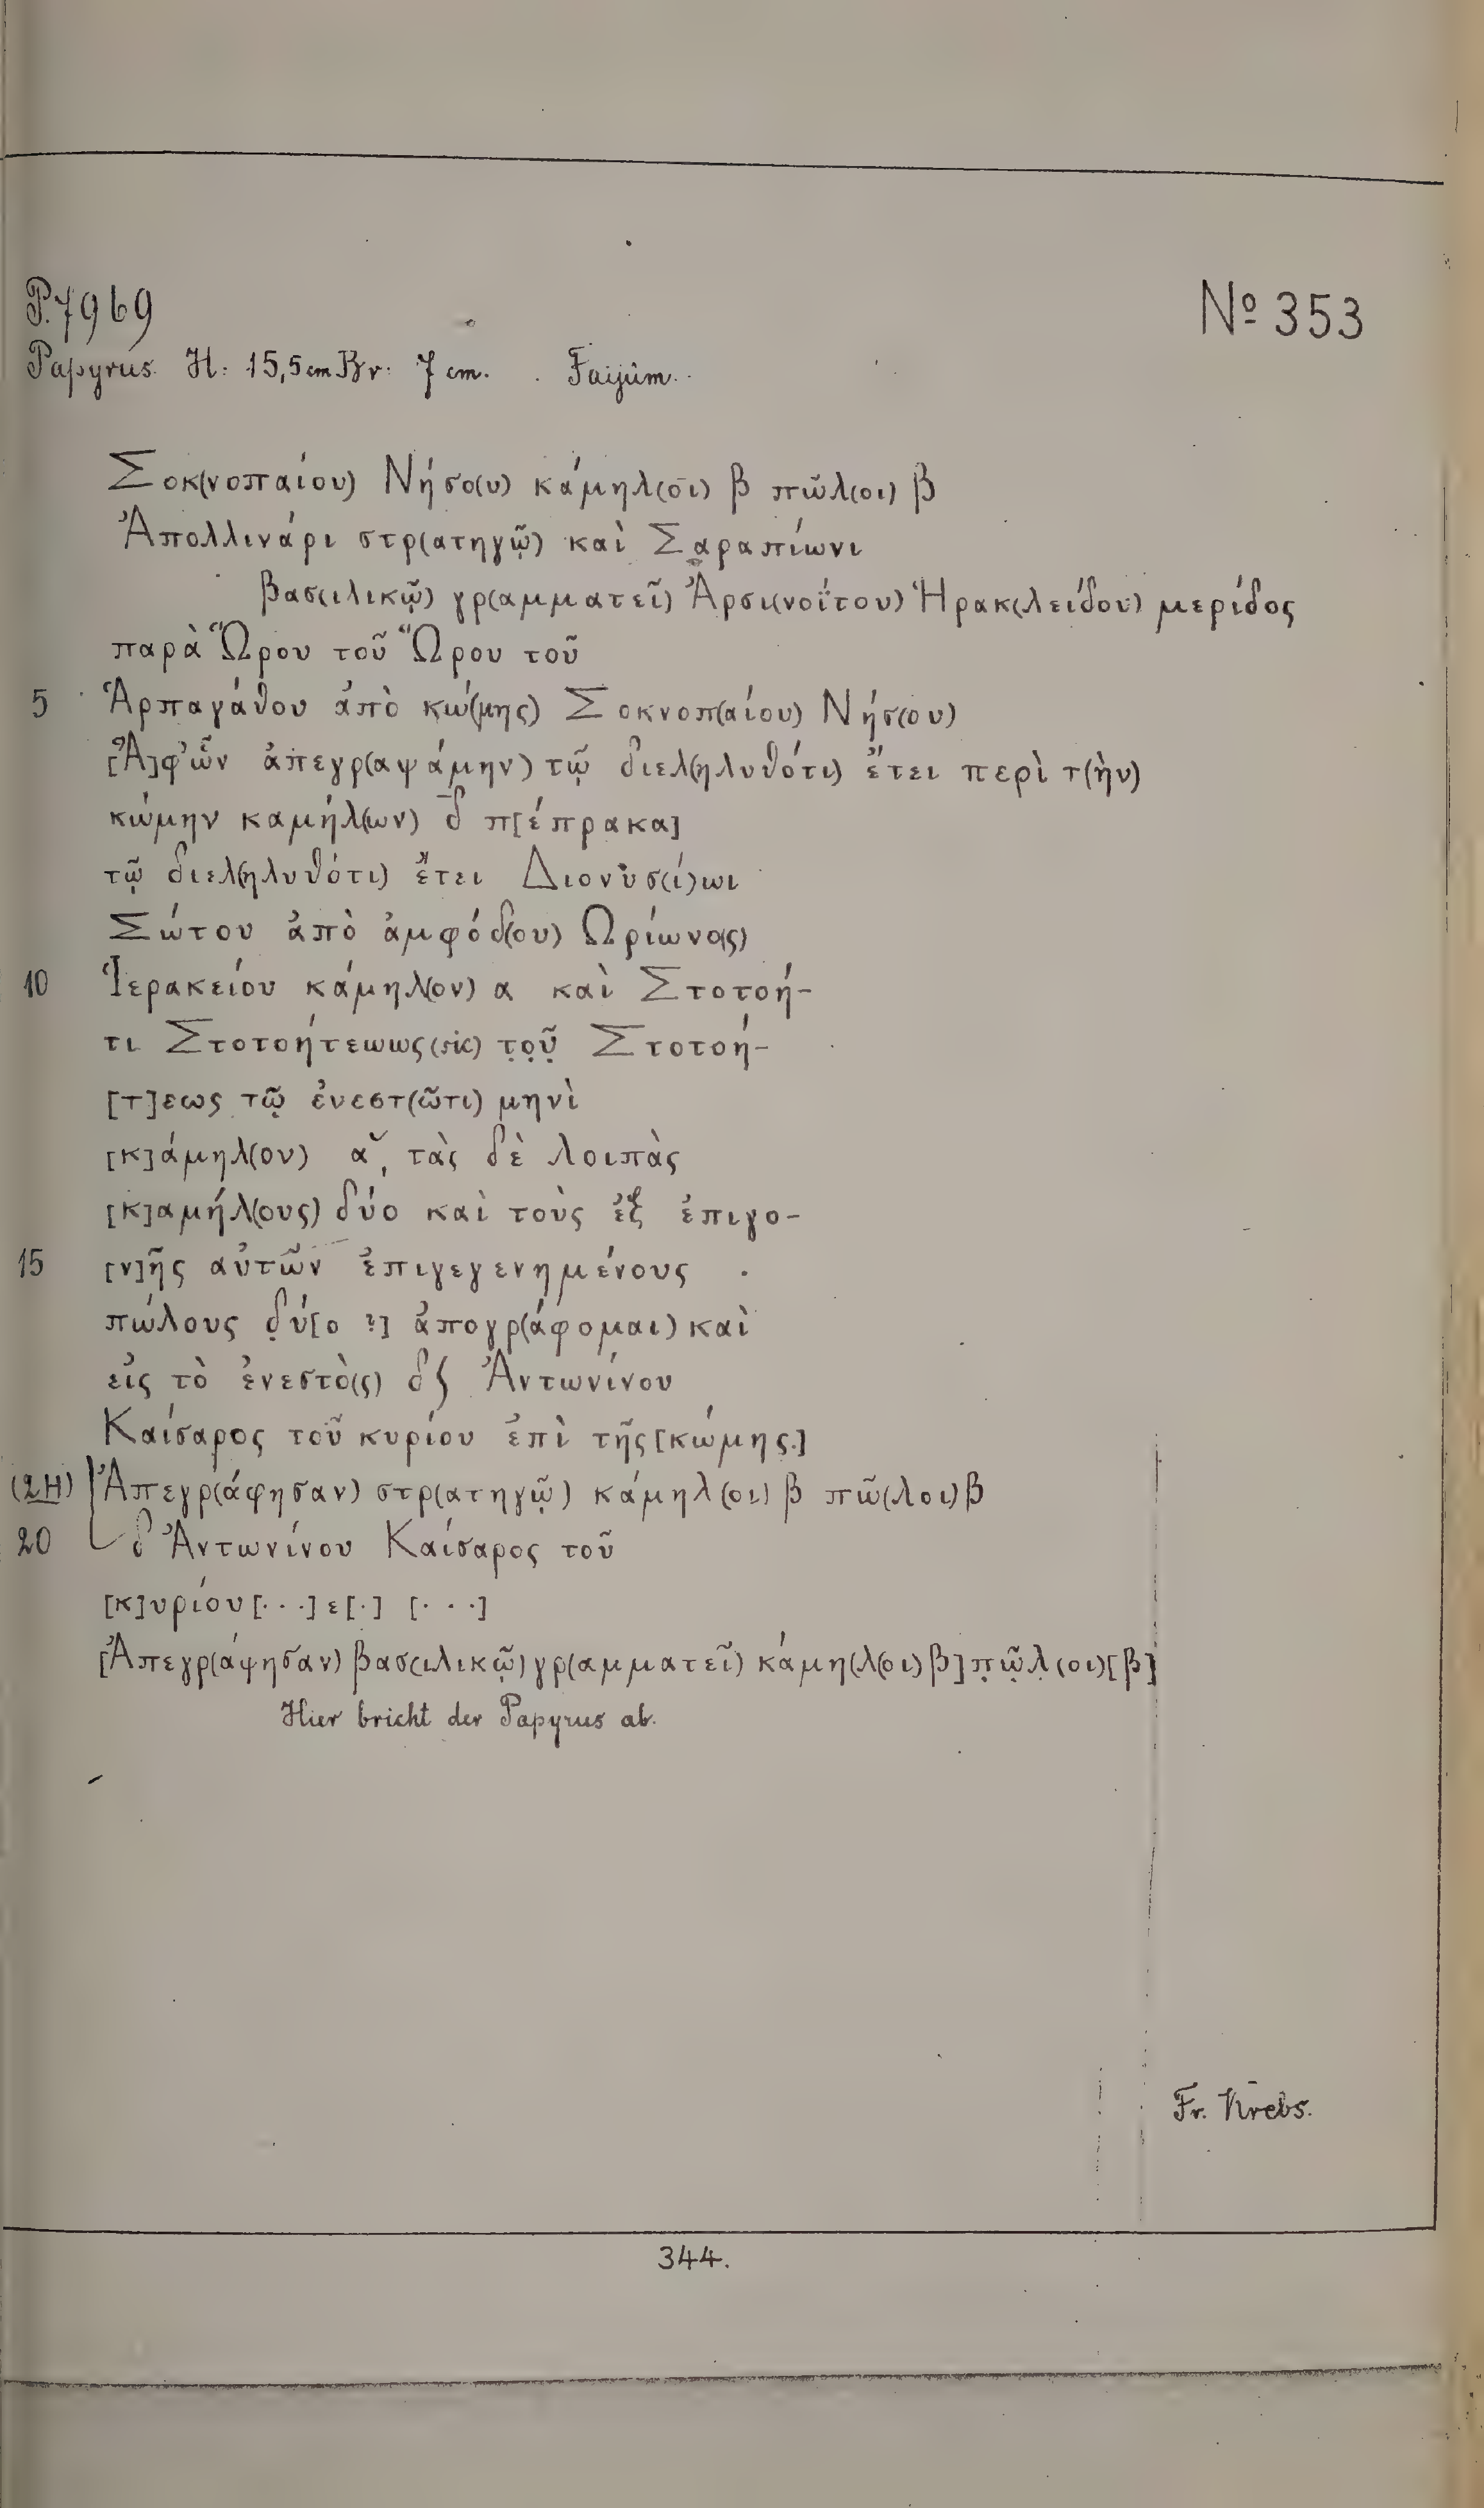 P. 7969
No 353
Papyrus. H: 15,5 cm Br: 7 cm. Faijûm.
Σοκ(νοπαίου) Νήσο(υ) κάμηλ(οι) β πῶλ(οι) β
Ἀπολλινάρι στρ(ατηγῷ) καὶ Σαραπίωνι
βασ(ιλικῷ) γρ(αμματεῖ) Ἀρσι(νοΐτου) Ἡρακ(λείδου) μερίδος
παρὰ Ὥρου τοῦ Ὥρου τοῦ
5 Ἁρπαγάθου ἀπὸ κώ(μης) Σοκνοπ(αίου) Νήσ(ου)
[Ἀ]φʼ ὧν ἀπεγρ(αψάμην) τῷ διελ(ηλυθότι) ἔτει περὶ τ(ὴν)
κώμην καμήλ(ων) δ̄ π[έπρακα]
τῷ διελ(ηλυθότι) ἔτει Διονυσ(ί)ωι
Σώτου ἀπὸ ἀμφόδ(ου) Ὡρίωνο(ς)
10 Ἱερακείου κάμηλ(ον) α καὶ Στοτοή-
τι Στοτοήτεωως (sic) τ̣ο̣ῦ̣ Στοτοή-
[τ]εως τῷ ἐνεστ(ῶτι) μηνὶ
[κ]άμηλ(ον) α, τὰς δὲ λοιπὰς
[κ]αμήλ(ους) δύο καὶ τοὺς ἐξ ἐπιγο-
15 [ν]ῆς αὐτῶν ἐπιγεγενημένους
πώλους δ̣ύ[ο ?] ἀπογρ(άφομαι) καὶ
εἰς τὸ ἐνεστὸ(ς) δ ʃ Ἀντωνίνου
Καίσαρος τοῦ κυρίου ἐπὶ τῆς [κώμης.]
(2H) Ἀπεγρ(άφησαν) στρ(ατηγῷ) κάμηλ(οι) β πῶ(λοι) β
20 δ Ἀντωνίνου Καίσαρος τοῦ
[κ]υρίου [...] ε[.] [...]
[Ἀπεγρ(άφησαν) βασ(ιλικῷ) γρ(αμματεῖ) κάμη(λ(οι) β] π̣ῶ̣λ̣(οι) [β]
Hier bricht der Papyrus ab.
Fr. Krebs.
344.